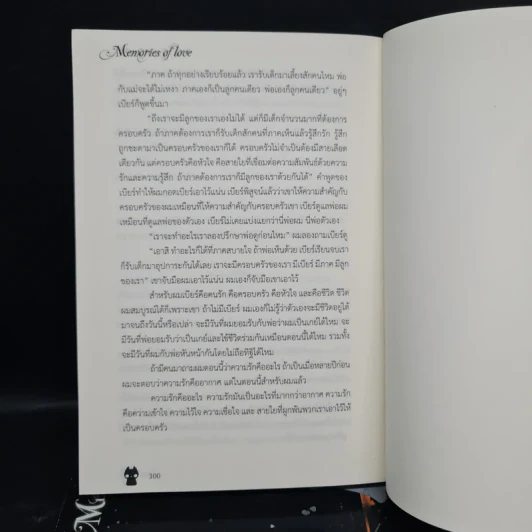 Memories of love
"ภาค ถ้าทุกอย่างเรียบร้อยแล้ว เรารับเด็กมาเลี้ยงสักคนไหม พ่อ
กับแม่จะได้ไม่เหงา ภาคเองก็เป็นลูกคนเดียว พ่อเองก็ลูกคนเดียว" อยู่ๆ
เบียร์ก็พูดขึ้นมา
"ถึงเราจะมีลูกของเราเองไม่ได้ แต่ก็มีเด็กจำนวนมากที่ต้องการ
ครอบครัว ถ้าภาคต้องการเราก็รับเด็กสักคนที่ภาคเห็นแล้วรู้สึกรัก รู้สึก
ถูกชะตามาเป็นครอบครัวของเราก็ได้ ครอบครัวไม่จำเป็นต้องมีสายเลือด
เดียวกัน แต่ครอบครัวคือหัวใจ คือสายใยที่เชื่อมต่อความสัมพันธ์ด้วยความ
รักและความรู้สึก ถ้าภาคต้องการเราก็มีลูกของเราด้วยกันได้" คำพูดของ
เบียร์ทำให้ผมกอดเบียร์เอาไว้แน่น เบียร์พิสูจน์แล้วว่าเขาให้ความสำคัญกับ
ครอบครัวของผมเหมือนที่ให้ความสำคัญกับครอบครัวเขา เบียร์ดูแลพ่อผม
เหมือนที่ดูแลพ่อของตัวเอง เบียร์ไม่เคยแบ่งแยกว่านี่พ่อผม นี่พ่อตัวเอง
"เราจะทำอะไรเราลองปรึกษาพ่อดูก่อนไหม" ผมลองถามเบียร์ดู
"เอาสิ ทำอะไรก็ได้ที่ภาคสบายใจ ถ้าพ่อเห็นด้วย เบียร์เรียนจบเรา
ก็รับเด็กมาอุปการะกันได้เลย เราจะมีครอบครัวของเรา มีเบียร์ มีภาค มีลูก
ของเรา" เขาจับมือผมเอาไว้แน่น ผมเองก็จับมือเขาเอาไว้
สำหรับผมเบียร์คือคนรัก คือครอบครัว คือหัวใจ และคือชีวิต ชีวิต
ผมสมบูรณ์ได้ก็เพราะเขา ถ้าไม่มีเบียร์ ผมเองก็ไม่รู้ว่าตัวเองจะมีชีวิตอยู่ได้
มาจนถึงวันนี้หรือเปล่า จะมีวันที่ผมยอมรับกับพ่อว่าผมเป็นเกย์ได้ไหม จะ
มีวันที่พ่อยอมรับว่าเป็นเกย์และใช้ชีวิตร่วมกันเหมือนตอนนี้ได้ไหม รวมทั้ง
จะมีวันที่ผมกับพ่อหันหน้ากันโดยไม่ถือทิฐิได้ไหม
ถ้ามีคนมาถามผมตอนนี้ว่าความรักคืออะไร ถ้าเป็นเมื่อหลายปีก่อน
ผมจะตอบว่าความรักคืออากาศ แต่ในตอนนี้สำหรับผมแล้ว
ความรักคืออะไร ความรักมันเป็นอะไรที่มากกว่าอากาศ ความรัก
คือความเข้าใจ ความไว้ใจ ความเชื่อใจ และ สายใยที่ผูกพันพวกเราเอาไว้ให้
เป็นครอบครัว
300